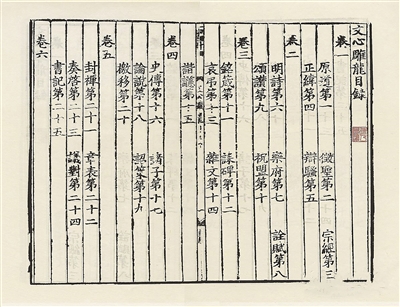 文心雕龍目錄
卷一
原道第一 徵聖第二 宗經第三
正緯第四 辯騷第五
卷二
明詩第六 樂府第七 詮賦第八
頌讚第九 祝明第十
卷三
銘箴第十一 誄碑第十二
哀弔第十三 雜文第十四
諧讔第十五
卷四
史傳第十六 諸子第十七
論說第十八 詔策第十九
檄移第二十
卷五
封禪第二十一 章表第二十二
奏啓第二十三 議對第二十四
書記第二十五
卷六